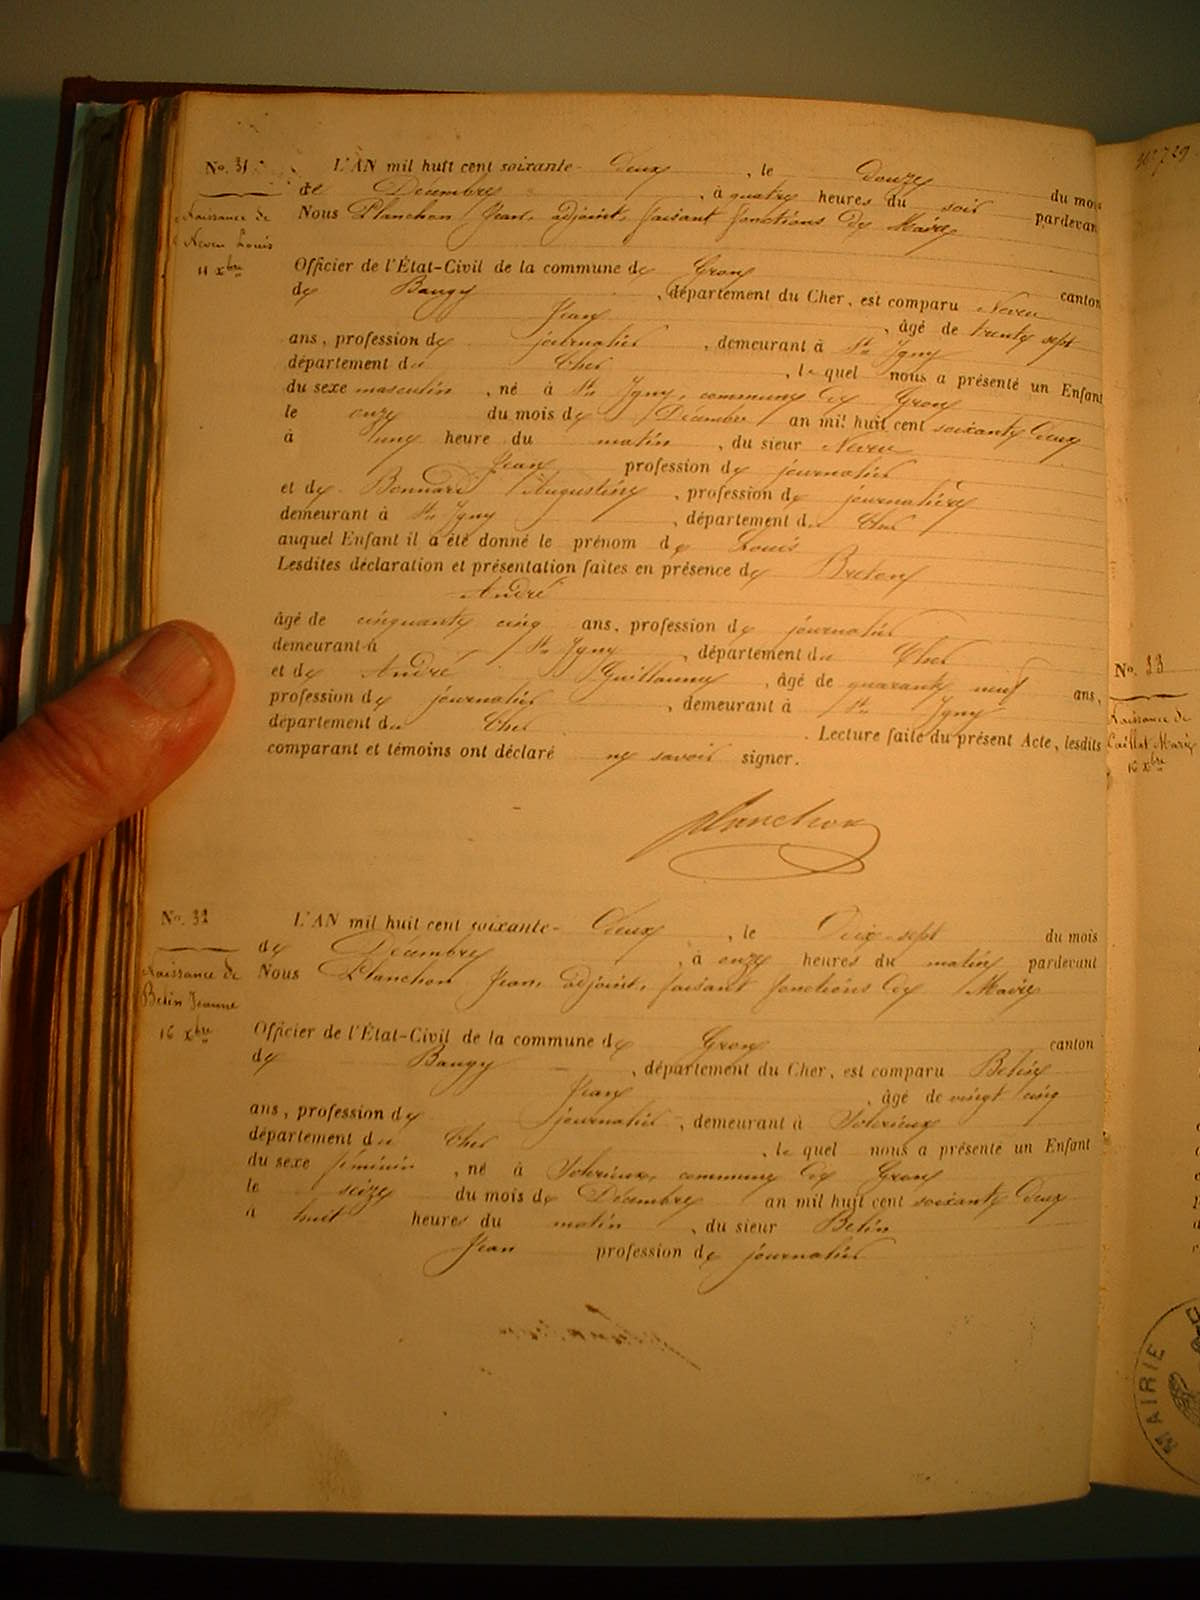 No. 31.
Naissance de
Neveu Louis
11 xbre
L'AN mil huit cent soixante-deux, le douze du mois
de Décembre, à quatre heures du soir pardevan
Nous Planchon Jean, adjoint, faisant fonctions de Maire
Officier de l'État-Civil de la commune de Gron canton
de Baugy, département du Cher, est comparu Neveu
Jean, âgé de trente sept
ans, profession de journalier, demeurant à St Igny
département du Cher, lequel nous a présenté un Enfant
du sexe masculin, né à St Igny, commune de Gron
le onze du mois de Décembre an mil huit cent soixante deux
à une heure du matin, du sieur Neveu
Jean profession de journalier
et de Bonnard Augustine, profession de journalière
demeurant à St Igny, département du Cher
auquel Enfant il a été donné le prénom de Louis
Lesdites déclaration et présentation faites en présence de Breton
André
âgé de cinquante cinq ans, profession de journalier
demeurant à St Igny, département du Cher
et de André Guillaume, âgé de quarante neuf ans,
profession de journalier, demeurant à St Igny
département du Cher. Lecture faite du présent Acte, lesdits
comparant et témoins ont déclaré ne savoir signer.
Planchon
No. 32
Naissance de
Belin Jeanne
16 xbre
L'AN mil huit cent soixante-deux, le Dix-sept du mois
de Décembre, à onze heures du matin pardevant
Nous Planchon Jean, adjoint, faisant fonctions de Maire
Officier de l'État-Civil de la commune de Gron canton
de Baugy, département du Cher, est comparu Belin
Jean, âgé de vingt cinq
ans, profession de journalier, demeurant à Solerieux
département du Cher, lequel nous a présenté un Enfant
du sexe féminin, né à Solerieux, commune de Gron
le seize du mois de Décembre an mil huit cent soixante deux
à huit heures du matin, du sieur Belin
Jean profession de journalier
No. 33
Naissance de
Caillat Marie
16 xbre
MAIRIE